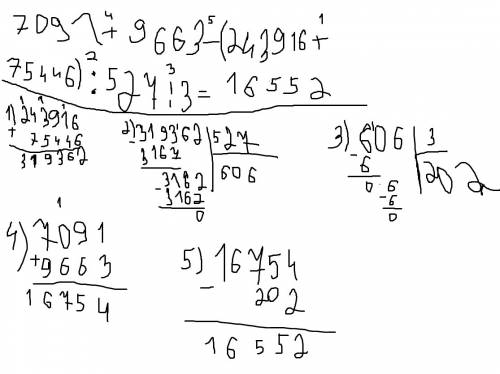 4 5 1
7091 + 9663 - (243916 +
2 3
75446) : 527 : 3 = 16552
1) 243916
+ 75446
319362
2) 319362 | 527
- 3162 | 606
- 3162
3162
0
3) 606 | 3
- 6 | 202
0 6
- 6
0
1
4) 7091
+ 9663
16754
5) 16754
- 202
16552